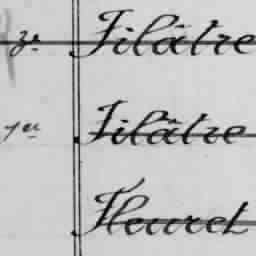 3e Filâtre
1er Filâtre
Fleuret